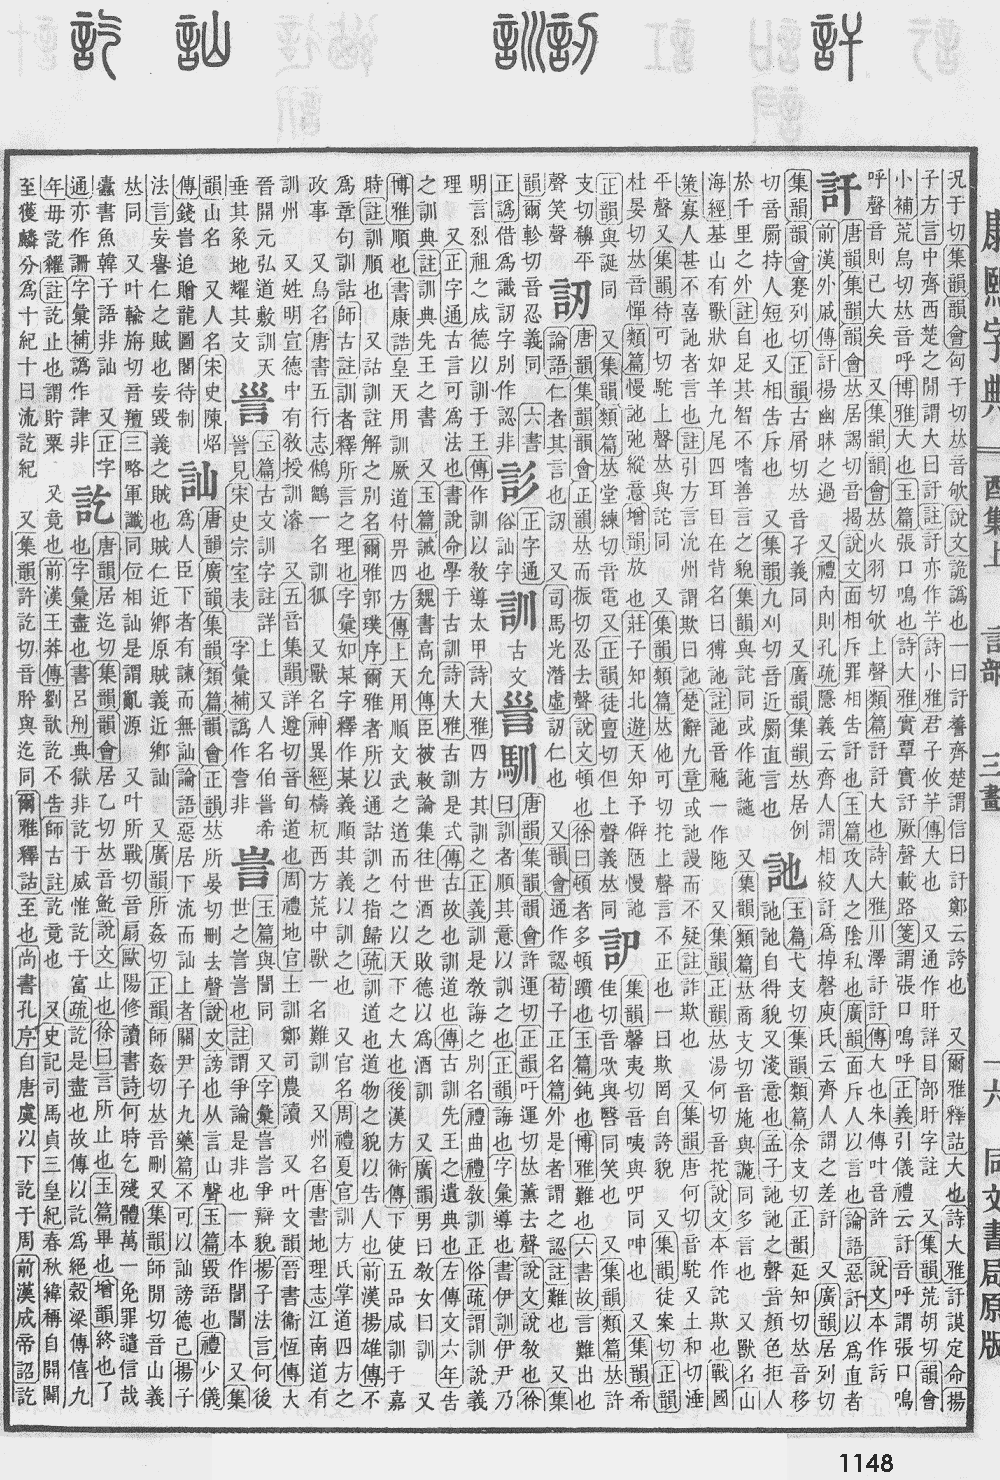 訐
訒訓
訕
訖
康熙字典 酉集上 言部 三畫 一六 同文書局原版
况于切集韻韻會匈于切𠀤音欨說文詭譌也一曰訏𧮪齊楚謂信曰訏鄭云誇也 又爾雅釋詁大也詩大雅訏謨定命揚
子方言中齊西楚之閒謂大曰訏註訏亦作芋詩小雅君子攸芋傳大也 又通作盱詳目部盱字註 又集韻荒胡切韻會
小補荒烏切𠀤音呼博雅大也玉篇張口鳴也詩大雅實覃實訏厥聲載路箋謂張口嗚呼正義引儀禮云訏音呼謂張口鳴
呼聲音則已大矣 又集韻韻會𠀤火羽切欨上聲類篇訏訏大也詩大雅川澤訏訏傳大也朱傳叶音許 說文本作
訐
唐韻集韻韻會𠀤居謁切音揭說文面相斥罪相告訐也玉篇攻人之陰私也廣韻面斥人以言也論語惡訐以爲直者
前漢外戚傳訐揚幽昧之過 又禮內則孔疏隱義云齊人謂相絞訐爲掉磬庾氏云齊人謂之差訐 又廣韻居列切
集韻韻會蹇列切正韻古屑切𠀤音孑義同 又廣韻集韻𠀤居例切
切音罽持人短也又相告斥也 又集韻九刈切音近罽直言也
訑
玉篇弋支切集韻類篇余支切正韻延知切𠀤音移
訑訑自得貌又淺意也孟子訑訑之聲音顏色拒人
於千里之外註自足其智不嗜善言之貌集韻與詑同或作訑 又集韻類篇𠀤商支切音施與䛠同多言也 又獸名山
海經基山有獸狀如羊九尾四耳目在背名曰猼訑註訑音施一作陁 又集韻正韻𠀤湯何切音拕說文本作詑欺也戰國
策寡人甚不喜訑者言也註引方言沇州謂欺曰訑楚辭九章或訑謾而不疑註詐欺也 又集韻唐何切音駝又土和切涶
平聲又集韻待可切駝上聲𠀤與詑同 又集韻類篇𠀤他可切拕上聲言不正也一曰欺罔自誇貌 又集韻徒案切正韻
杜晏切𠀤音憚類篇慢訑弛縱意增韻放也莊子知北遊天知予僻陋慢訑
訒
唐韻集韻韻會正韻𠀤而振切忍去聲說文頓也徐曰頓者多頓躓也玉篇鈍也博雅難也六書故言難出也
論語仁者其言也訒 又司馬光潛虛訒仁也 又韻會通作認荀子正名篇外是者謂之認註難也 又集
韻爾軫切音忍義同 六書
正譌借爲識訒字別作認非
訓
古文
唐韻集韻韻會許運切正韻吁運切𠀤薰去聲說文說敎也徐
曰訓者順其意以訓之也正韻誨也字彙導也書伊訓伊尹乃
明言烈祖之成德以訓于王傳作訓以敎導太甲詩大雅四方其訓之正義訓是敎誨之別名禮曲禮敎訓正俗疏謂訓說義
理 又正字通古言可爲法也書說命學于古訓詩大雅古訓是式傳古故也訓道也傳古訓先王之遺典也左傳文六年告
之訓典註訓典先王之書 又玉篇誡也魏書高允傳臣被敕論集往世酒之敗德以爲酒訓 又廣韻男曰敎女曰訓 又
博雅順也書康誥皇天用訓厥道付畀四方傳上天用順文武之道而付之以天下之大也後漢方術傳下使五品咸訓于嘉
時註訓順也 又詁訓註解之別名爾雅郭璞序爾雅者所以通詁訓之指歸疏訓道也道物之貌以告人也前漢揚雄傳不
爲章句訓詁師古註訓者釋所言之理也字彙如某字釋作某義順其義以訓之也 又官名周禮夏官訓方氏掌道四方之
政事 又鳥名唐書五行志鵂鶹一名訓狐 又獸名神異經檮杌西方荒中獸一名難訓 又州名唐書地理志江南道有
訓州 又姓明宣德中有敎授訓濬 又五音集韻詳遵切音旬道也周禮地官土訓鄭司農讀 又叶文韻晉書衞恆傳大
晉開元弘道敷訓天
垂其象地耀其文
玉篇古文訓字註詳上 又人名伯
見宋史宗室表 字彙補譌作
訕
唐韻廣韻集韻類篇韻會正韻𠀤所晏切刪去聲說文謗也从言山聲玉篇毀語也禮少儀
爲人臣下者有諫而無訕論語惡居下流而訕上者關尹子九藥篇不可以訕謗德己揚子
法言妄譽仁之賊也妄毀義之賊也賊仁近鄉原賊義近鄉訕 又廣韻所姦切正韻師姦切𠀤音刪又集韻師閒切音山義
𠀤同 又叶輪旃切音羶三略軍讖同位相訕是謂亂源 又叶所戰切音扇歐陽修讀書詩何時乞殘體萬一免罪譴信哉
蠹書魚韓子語非訕 又正字
通亦作姍字彙補譌作
訖
唐韻居迄切集韻韻會居乙切𠀤音吃說文止也徐曰言所止也玉篇畢也增韻終也了
也字彙盡也書呂𠛬典獄非訖于威惟訖于富疏訖是盡也故傳以訖爲絕穀梁傳僖九
年毋訖糴註訖止也謂貯粟 又竟也前漢王莽傳劉歆訖不告師古註訖竟也 又史記司馬貞三皇紀春秋緯稱自開闢
至獲麟分爲十紀十曰流訖紀 又集韻許訖切音肸與迄同爾雅釋詁至也尚書孔序自唐虞以下訖于周前漢成帝詔訖
1148